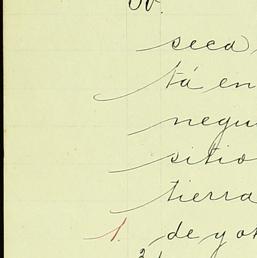 50.
seca,
tá en
negu
sitio
tierra
1. de y ot